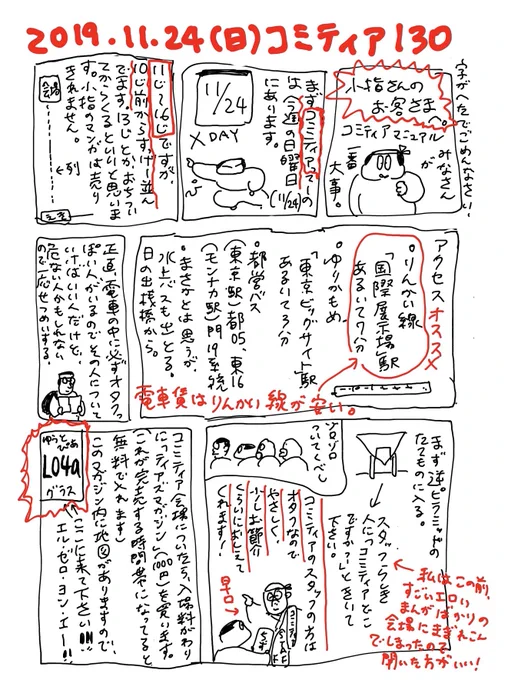 2019.11.24(日)コミティア130
字がきたなくてごめんなさい!
小指さんの
お客さま
へ。
コミティアマニュアル
みなさん
が
一番
大事。
まずコミティアって
の
は今週の日曜日
(11/24)
にあります。
11/24
X DAY
11じ〜16じですが、
10じ前からすっげー並ん
でます。13じとかおちつい
てからくるといいと思いま
す。小指のマンガは売り
きれません。
会場
←列
アクセス オススメ
・りんかい線
「国際展示場」駅
あるいて7分
・ゆりかもめ
「東京ビッグサイト」駅
あるいて3分
・都営バス
(東京駅/都05、東16
(モンナカ駅/門19系統
・まさかとは思うが
水上バスも出とる。
日の出桟橋から。
電車賃はりんかい線が安い。
正直、電車の中に必ずオタク
ぽい人がいるのでその人について
いけばいい人だけど、
危ない人かもしれない
ので一応せつめいする。
まず逆ピラミッドの
たてものに入る。
スタッフらしき
人に「コミティアどこ
ですか?」ときいて
下さい。
←私はこの前、
すごいエロい
まんがばかりの
会場にまぎれこん
でしまったので
聞いた方がいい!
ゾロゾロ
ついてくべし
コミティアのスタッフの方は
オタクなので
やさしく、
少しお節介
くらいにおしえて
くれます!
早口
コミティア会場についたら、入場料がわり
にティアズマガジン(1000円)を買います。
(これが完売する時間帯になってると
無料で入れます)
このマガジン内に地図がありますので、
ここに来て下さい!!!
エル・ゼロ・ヨン・エー!!
ゆうとぴあ
L04a
グラス